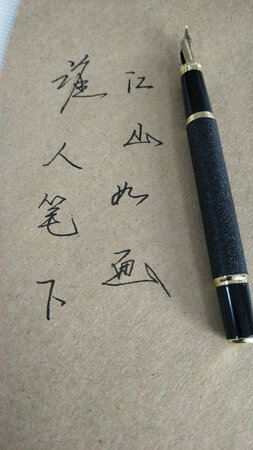 江山如画
谁人笔下